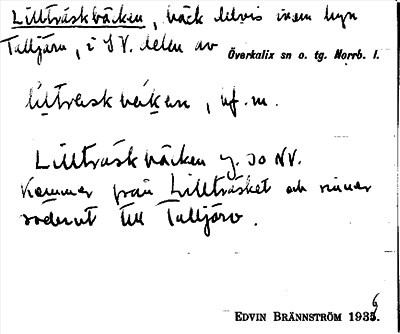 Lillträskbäcken, bäck delvis inom byn
Talljärv, i SV. delen av Överkalix sn o. tg. Norrb. l.
lilträskbäken, uf. m.
Lillträskbäcken y. 30 NV.
Kommer från Lillträsket och rinner
söderut till Talljärv.
EDVIN BRÄNNSTRÖM 1936.